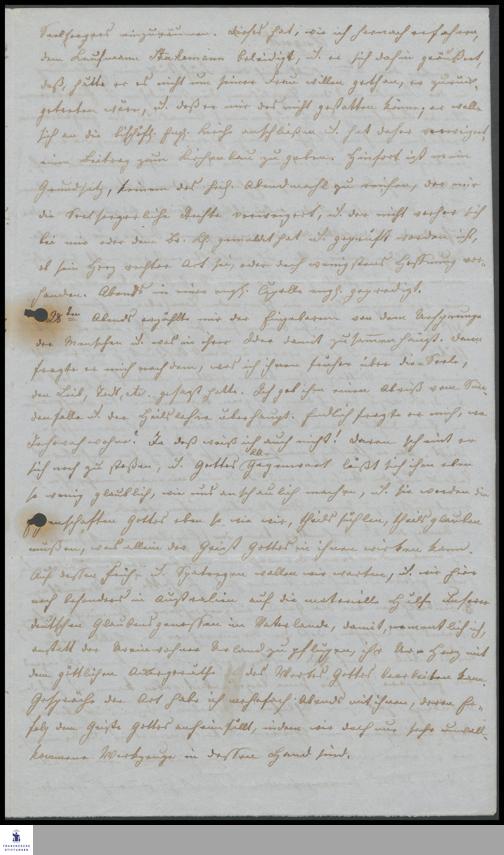 Seelsorgers einzuräumen. Dieses hat, wie ich hernach erfahren,
den Kaufmann beleidigt, u. er sich dahin geäußert,
daß, hätte er es nicht um seiner Frau willen gethan, er zurück-
getreten wäre, u. daß er mir das nicht gestatten könne, er wolle
sich an die bischöfl. engl. Kirche anschließen u. hat daher verweigert,
einen Beitrag zum Kirchenbau zu geben. Hinfort ist mein
Grundsatz, keinem das heil. Abendmahl zu reichen, der mir
die Seelsorgerliche Rechte verweigert, u. der nicht vorher sich
bei mir oder dem Br. gemeldet hat u. geprüft worden ist,
ob sein Herz rechter Art sei, oder doch wenigstens Hoffnung vor-
handen. Abends in einer engl. Capelle engl. gepredigt.
28ten Abends erzählte mir der von dem Ursprunge
der Menschen u. was in ihrer Idee damit zusammenhängt. Dann
fragte er mich nach dem, was ich ihnen früher über die Seele,
den Leib, Tod, etc. gesagt hatte. Ich gab ihm einen Abriß vom Sün-
denfalle u. der Heilslehre überhaupt. Endlich fragte er mich, wo
Jehovah wohne? Ja das weiß ich auch nicht! Daran scheint er
sich noch zu stoßen, u. Gottes Gegenwart läßt sich ihm eben
so wenig glaublich, wie uns anschaulich machen, u. sie werden die
Eigenschaften Gottes eben so wie wir, theils fühlen, theils glauben
müssen, was allein der Geist Gottes in ihnen wirken kann.
Auf dessen Früh- u. Spatregen wollen wir warten, u. wir hier
noch besonders in Australien auf die materielle Hülfe unserer
deutschen Glaubensgenossen im Vaterlande, damit, namentlich ich,
anstatt der Ureinwohner Urland zu pflügen, ihr Urherz mit
dem göttlichen Ackergeräthe des Wortes Gottes bearbeiten kann.
Gespräche der Art habe ich mehrfach Abends mit ihnen, deren Er-
folg dem Geiste Gottes anheimfällt, indem wir doch nur sehr unvoll-
kommene Werkzeuge in dessen Hand sind.
FRANCKESCHE
STIFTUNGEN